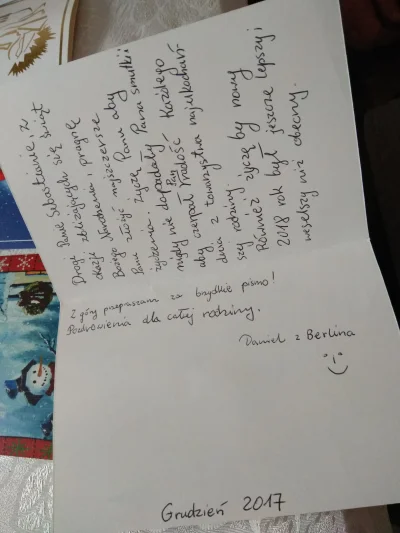 Drogi Panie Sebastianie, z
okazji zbliżających się Świąt
Bożego Narodzenia, pragnę
Panu złożyć najszczersze
życzenia. Życzę Panu aby
nigdy nie dopadały Pana smutki i
aby czerpał Pan radość każdego
dnia z towarzystwa najukochań-
szej rodziny.
Również życzę by nowy
2018 rok był jeszcze lepszy i
weselszy niż obecny.
Z góry przepraszam za brzydkie pismo!
Pozdrowienia dla całej rodziny.
Daniel z Berlina
Grudzień 2017